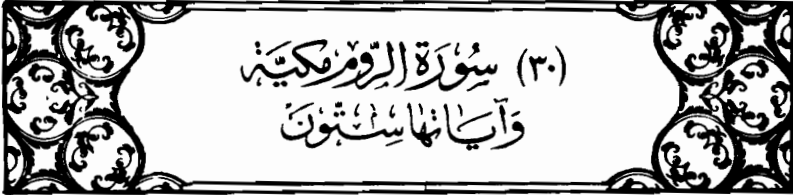 (٣٠) سُورَة الرّومِ مكيَّة
وَآيَاتها سِتّونَ